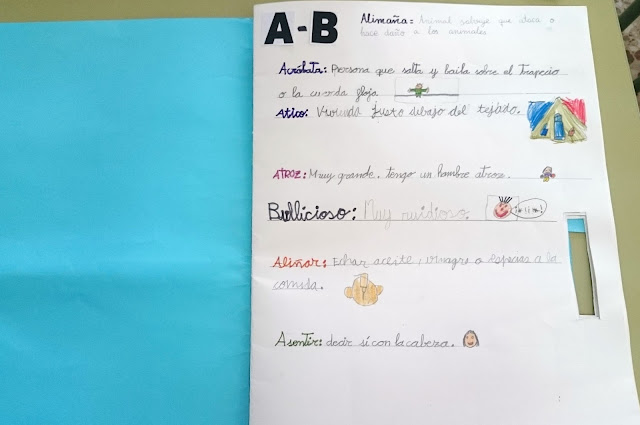 A-B
Alimaña: Animal salvaje que ataca o
hace daño a los animales
Acróbata: Persona que salta y baila sobre el Trapecio
o la cuerda floja
Atico: Vivienda justo debajo del tejado.
ATROZ: Muy grande. tengo un hambre atroz.
Bullicioso: Muy ruidioso.
Aliñar: Echar aceite, vinagre o especias a la
comida.
Asentir: decir sí con la cabeza.